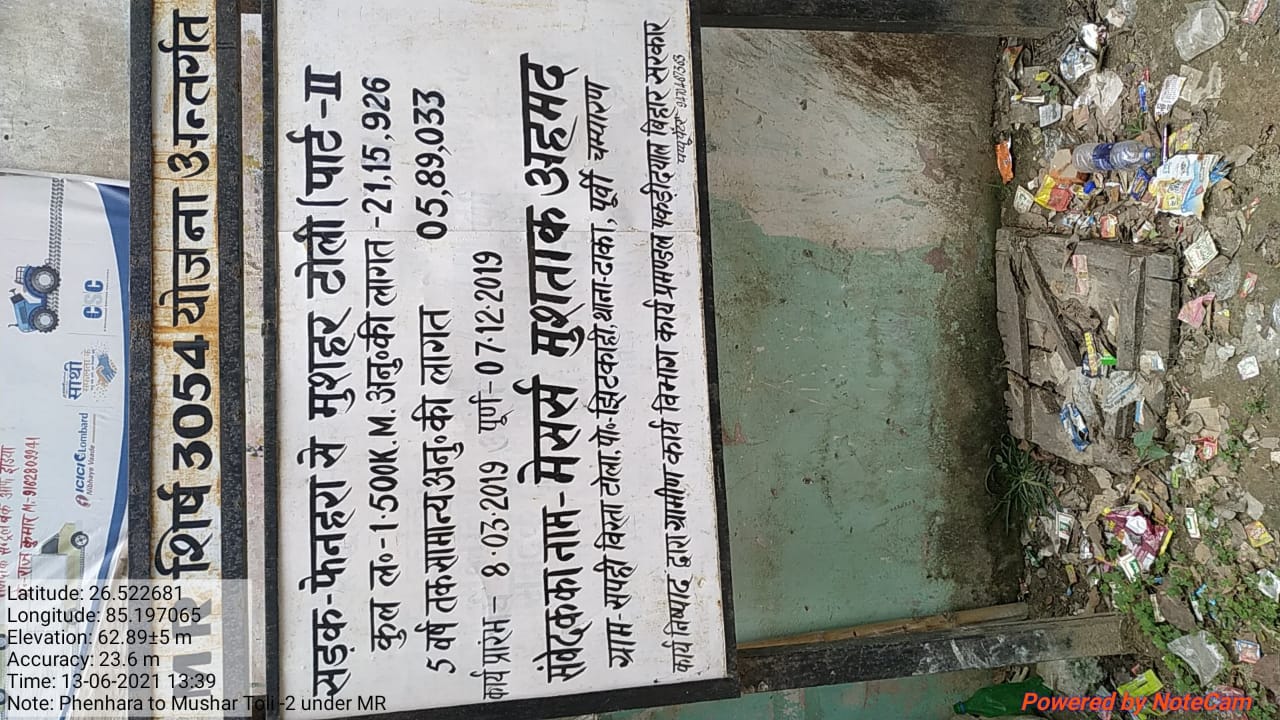 M R शिर्ष 3054 योजना अन्तर्गत
सड़क-फेनहरा से मुशहर टोली (पार्ट -II
कुल लं०-1.500K.M. अनु०की लागत -21,15,926
5 वर्ष तक सामान्य अनु०की लागत 05,89,033
कार्य प्रारंम - 8.03.2019 पूर्ण- 07.12.2019
संवेदक का नाम- मेसर्स मुशताक अहमद
ग्राम-सपही विरता टोला, पो०-झिटकाही, थाना-ढाका, पूर्वी चम्पारण
कार्य लिपाट द्वारा ग्रामीण कार्य विभाग कार्य प्रमण्डल पकड़ीदयाल बिहार सरकार
CSC
साथी
ICICI Lombard
Nibhaye Vaade
राज कुमार M:-9162803941
Latitude: 26.522681
Longitude: 85.197065
Elevation: 62.89±5 m
Accuracy: 23.6 m
Time: 13-06-2021 13:39
Note: Phenhara to Mushar Toli -2 under MR
Powered by NoteCam